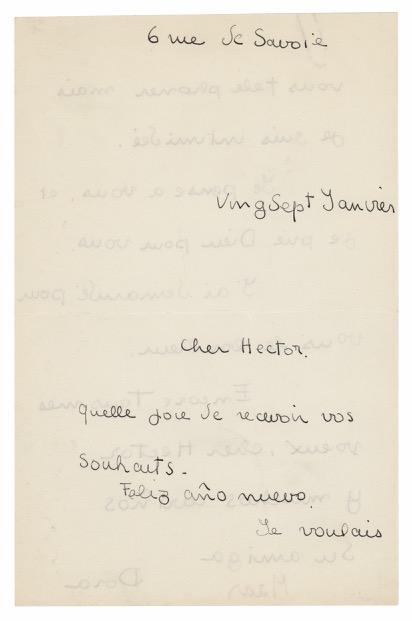 6 rue de Savoie
VingSept Janvier
Cher Hector.
quelle joie de recevoir vos
souhaits.
Feliz año nuevo.
Je voulais